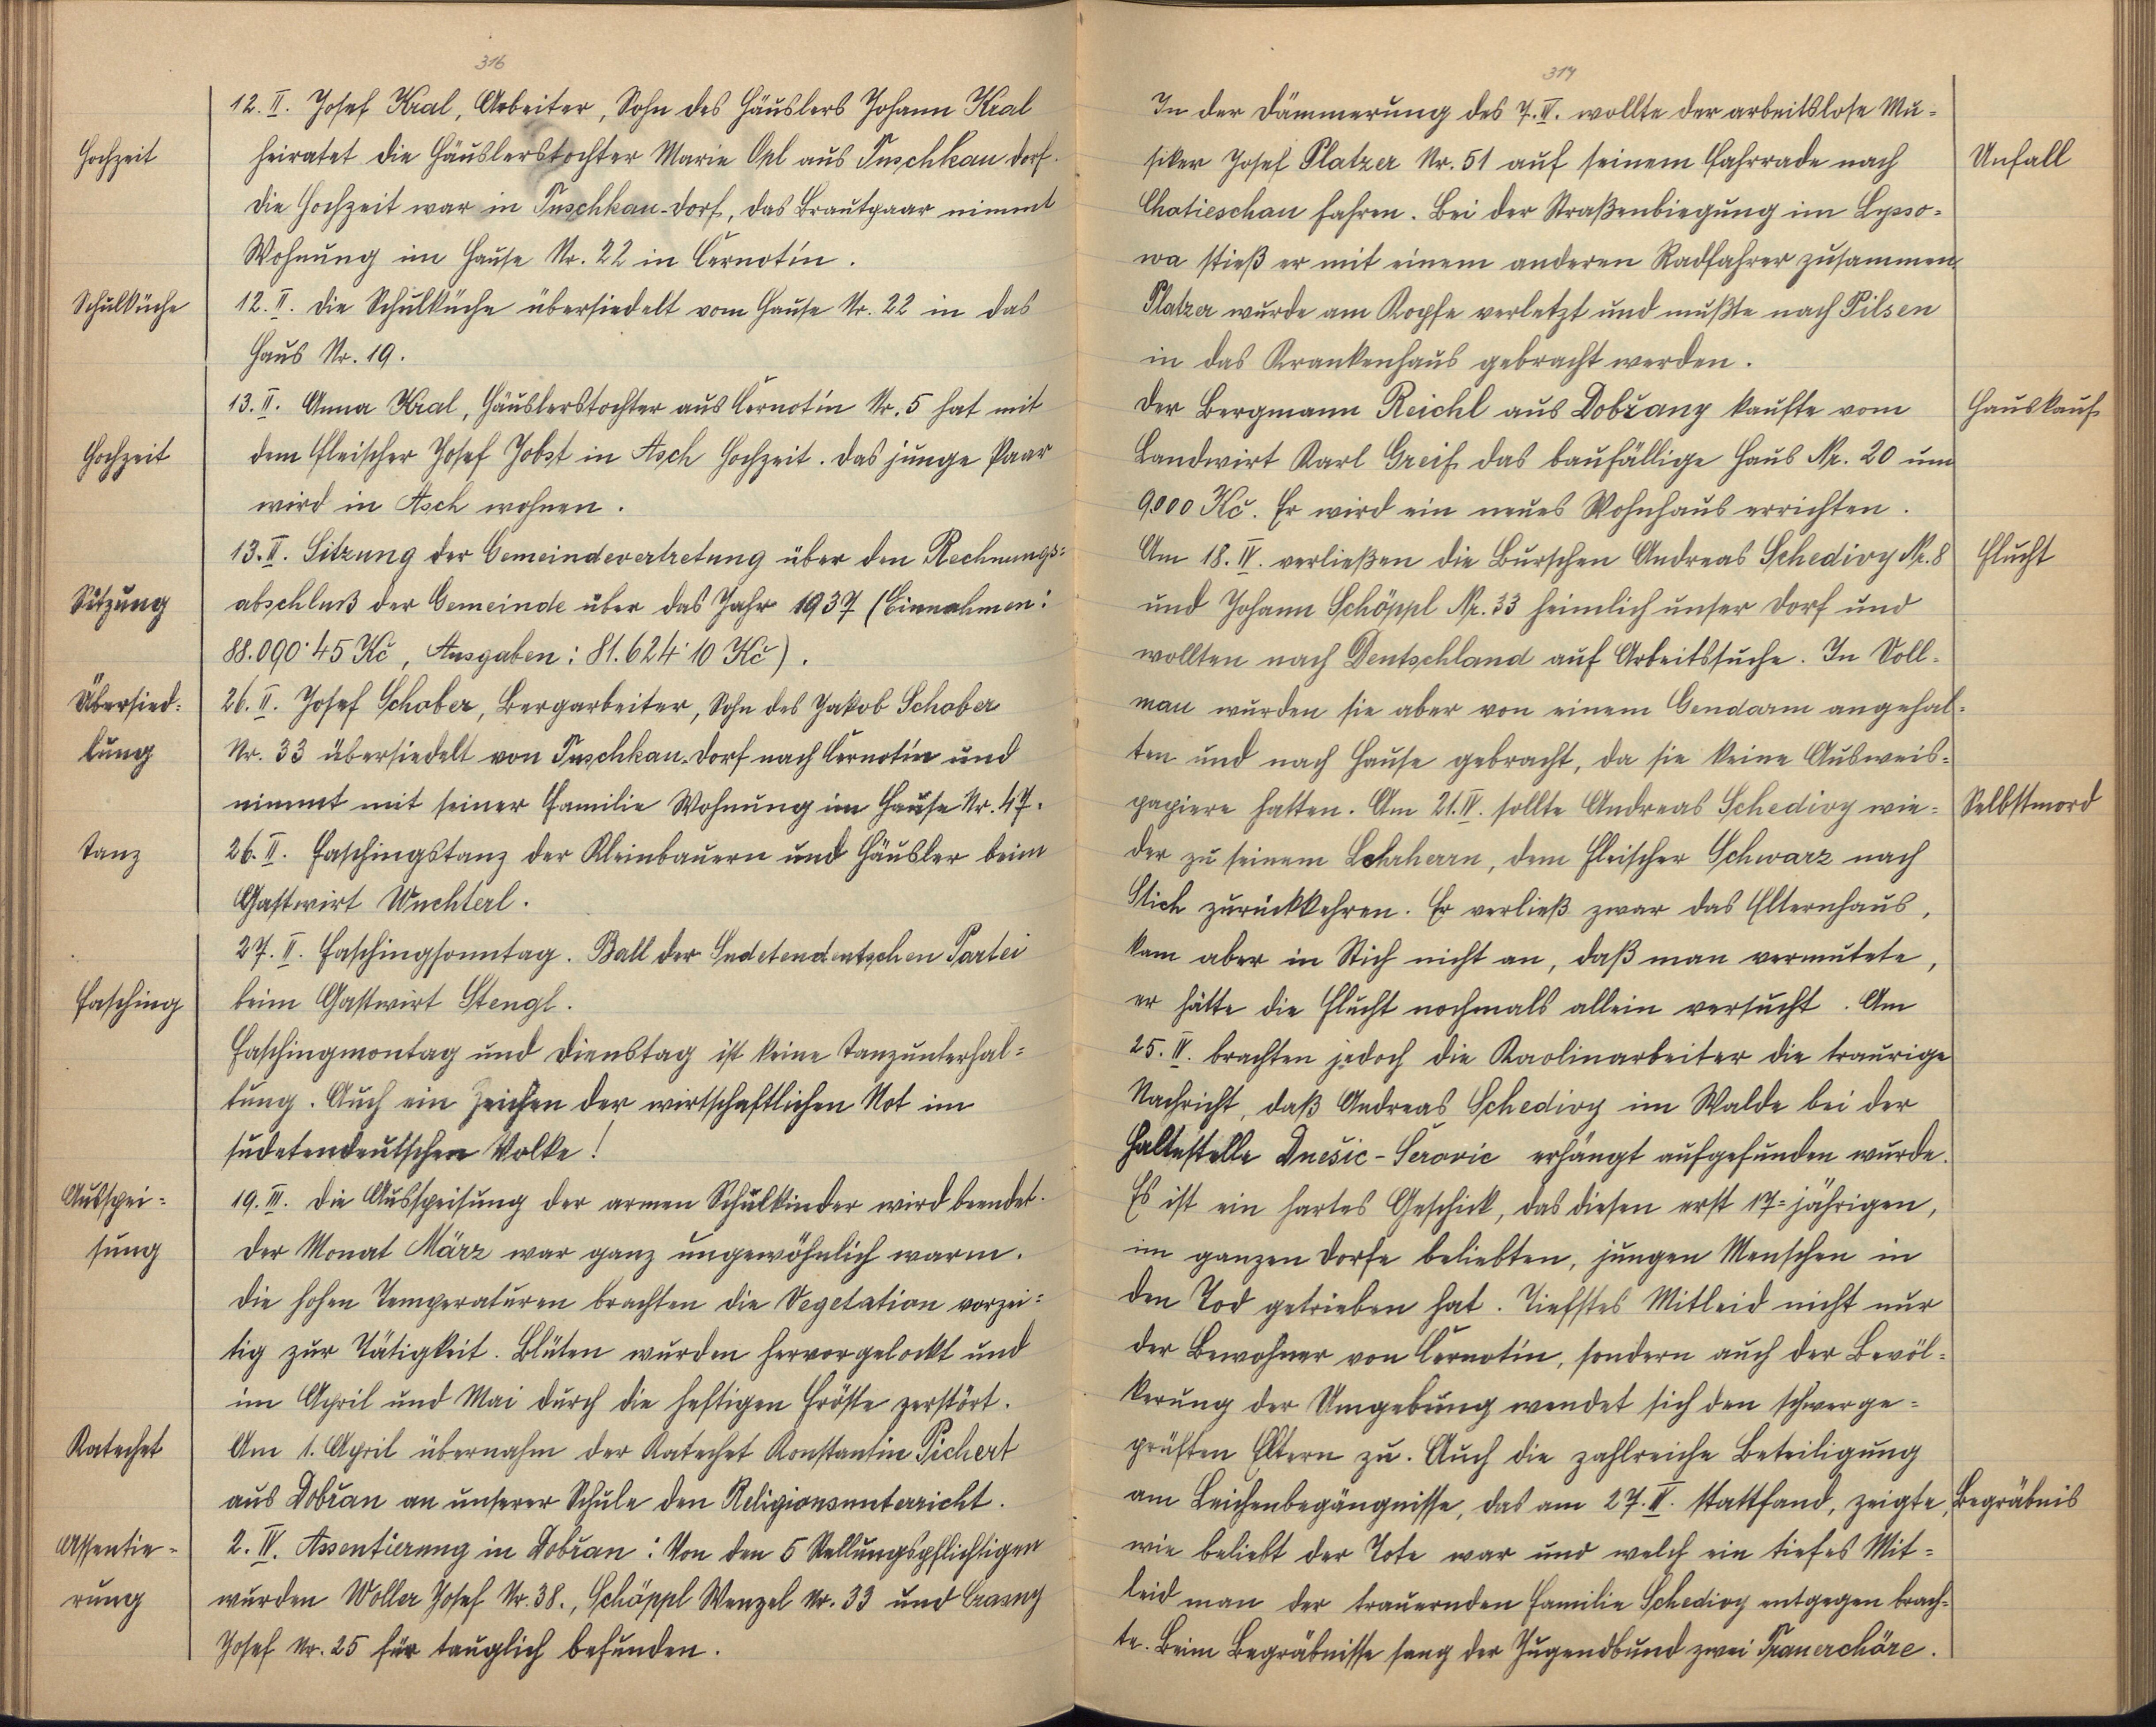 316
12. II. Josef Kral, Arbeiter, Sohn des Häuslers Johann Kral
Hochzeit
heiratet die Häuslerstochter Marie Opl aus Tuschkau Dorf.
Die Hochzeit war in Tuschkau-Dorf, das Brautpaar nimmt
Wohnung im Hause Nr. 22 in Černotin.
Schulküche
12. II. Die Schulküche übersiedelt vom Hause Nr. 22 in das
Haus Nr. 19.
13. II. Anna Kral, Häuslerstochter aus Černotin Nr. 5 hat mit
Hochzeit
dem Fleischer Josef Jobst in Asch Hochzeit. Das junge Paar
wird in Asch wohnen.
13. II. Sitzung der Gemeindevertretung über den Rechnungs=
Sitzung
abschluß der Gemeinde über das Jahr 1937 (Einnahmen:
88.090·45 Kč, Ausgaben: 81.624·10 Kč).
Übersied=
26. II. Josef Schober, Bergarbeiter, Sohn des Jakob Schober
lung
Nr. 33 übersiedelt von Tuschkau-Dorf nach Černotin und
nimmt mit seiner Familie Wohnung im Hause Nr. 47.
Tanz
26. II. Faschingstanz der Kleinbauern und Häusler beim
Gastwirt Wuchterl.
27. II. Faschingsonntag. Ball der Sudetendeutschen Partei
Fasching
beim Gastwirt Stengl.
Faschingmontag und Dienstag ist keine Tanzunterhal=
tung. Auch ein Zeichen der wirtschaftlichen Not im
sudetendeutschen Volke!
Ausspei=
19. III. Die Ausspeisung der armen Schulkinder wird beendet.
sung
Der Monat März war ganz ungewöhnlich warm.
Die hohen Temperaturen brachten die Vegetation vorzei=
tig zur Tätigkeit. Blüten wurden hervorgelockt und
im April und Mai durch die heftigen Fröste zerstört.
Katechet
Am 1. April übernahm der Katechet Konstantin Pichert
aus Dobřan an unserer Schule den Religionsunterricht.
Assentie=
2. IV. Assentierung in Dobřan: Von den 5 Stellungspflichtigen
rung
wurden Woller Josef Nr. 38., Schöppl Wenzel Nr. 33 und Crasny
Josef Nr. 25 für tauglich befunden.
317
In der Dämmerung des 7. IV. wollte der arbeitslose Mu=
siker Josef Platzer Nr. 51 auf seinem Fahrrade nach
Unfall
Chotieschau fahren. Bei der Straßenbiegung im Lysso=
wa stieß er mit einem anderen Radfahrer zusammen.
Platzer wurde am Kopfe verletzt und mußte nach Pilsen
in das Krankenhaus gebracht werden.
Der Bergmann Reichl aus Dobřany kaufte vom
Hauskauf
Landwirt Karl Greif das baufällige Haus Nr. 20 um
9000 Kč. Er wird ein neues Wohnhaus errichten.
Am 18. IV. verließen die Burschen Andreas Schedivy Nr. 8
Flucht
und Johann Schöppl Nr. 33 heimlich unser Dorf und
wollten nach Deutschland auf Arbeitssuche. In Voll=
mau wurden sie aber von einem Gendarm angehal=
ten und nach Hause gebracht, da sie keine Ausweis=
papiere hatten. Am 21. IV. sollte Andreas Schedivy wie=
Selbstmord
der zu seinem Lehrherrn, dem Fleischer Schwarz nach
Stich zurückkehren. Er verließ zwar das Elternhaus,
kam aber in Stich nicht an, daß man vermutete,
er hätte die Flucht nochmals allein versucht. Am
25. IV. brachten jedoch die Kaolinarbeiter die traurige
Nachricht, daß Andreas Schedivy im Walde bei der
Haltestelle Dnešic-Seravic erhängt aufgefunden wurde.
Es ist ein hartes Geschick, das diesen erst 17=jährigen,
im ganzen Dorfe beliebten, jungen Menschen in
den Tod getrieben hat. Tiefstes Mitleid nicht nur
der Bewohner von Černotin, sondern auch der Bevöl=
kerung der Umgebung wendet sich den schwerge=
prüften Eltern zu. Auch die zahlreiche Beteiligung
am Leichenbegängnisse, das am 27. IV. stattfand, zeigte,
Begräbnis
wie beliebt der Tote war und welch ein tiefes Mit=
leid man der trauernden Familie Schedivy entgegen brach=
te. Beim Begräbnisse sang der Jugendbund zwei Trauerchöre.